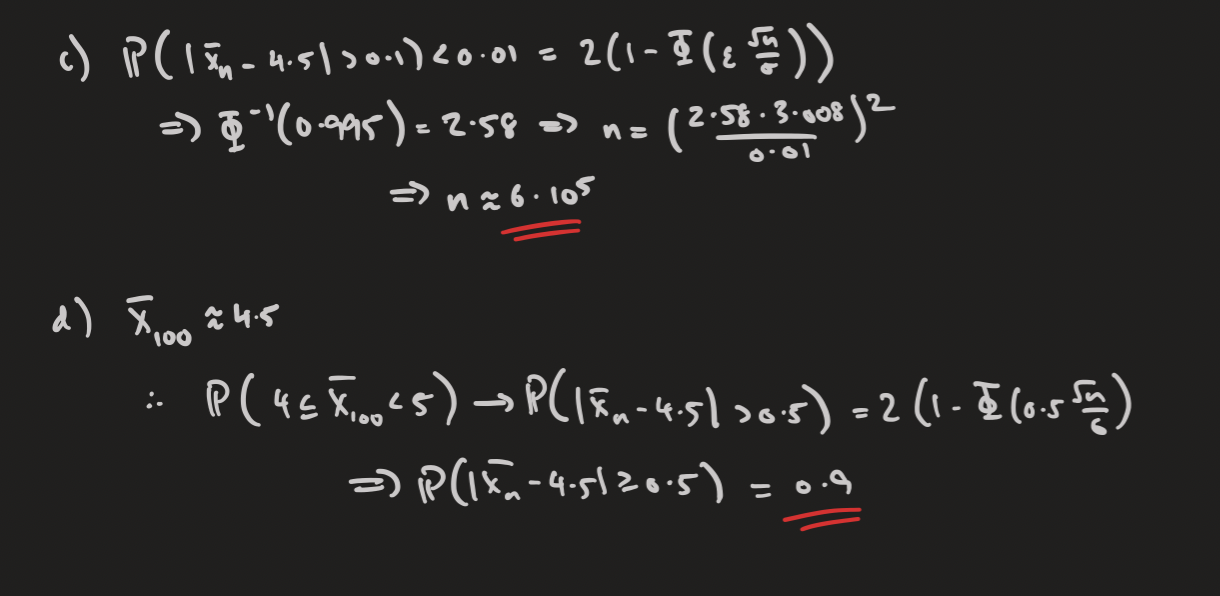 c) ℙ(|x̄ₙ - 4.5| > 0.1) < 0.01 = 2(1 - Φ(ε √n/σ))
⇒ Φ⁻¹(0.995) = 2.58 ⇒ n = (2.58 · 3.008 / 0.01)²
⇒ n ≈ 6 · 10⁵
d) X̄₁₀₀ ≈ 4.5
∴ ℙ(4 ≤ X̄₁₀₀ < 5) → ℙ(|x̄ₙ - 4.5| > 0.5) = 2(1 - Φ(0.5 √n/σ))
⇒ ℙ(|x̄ₙ - 4.5| ≥ 0.5) = 0.9